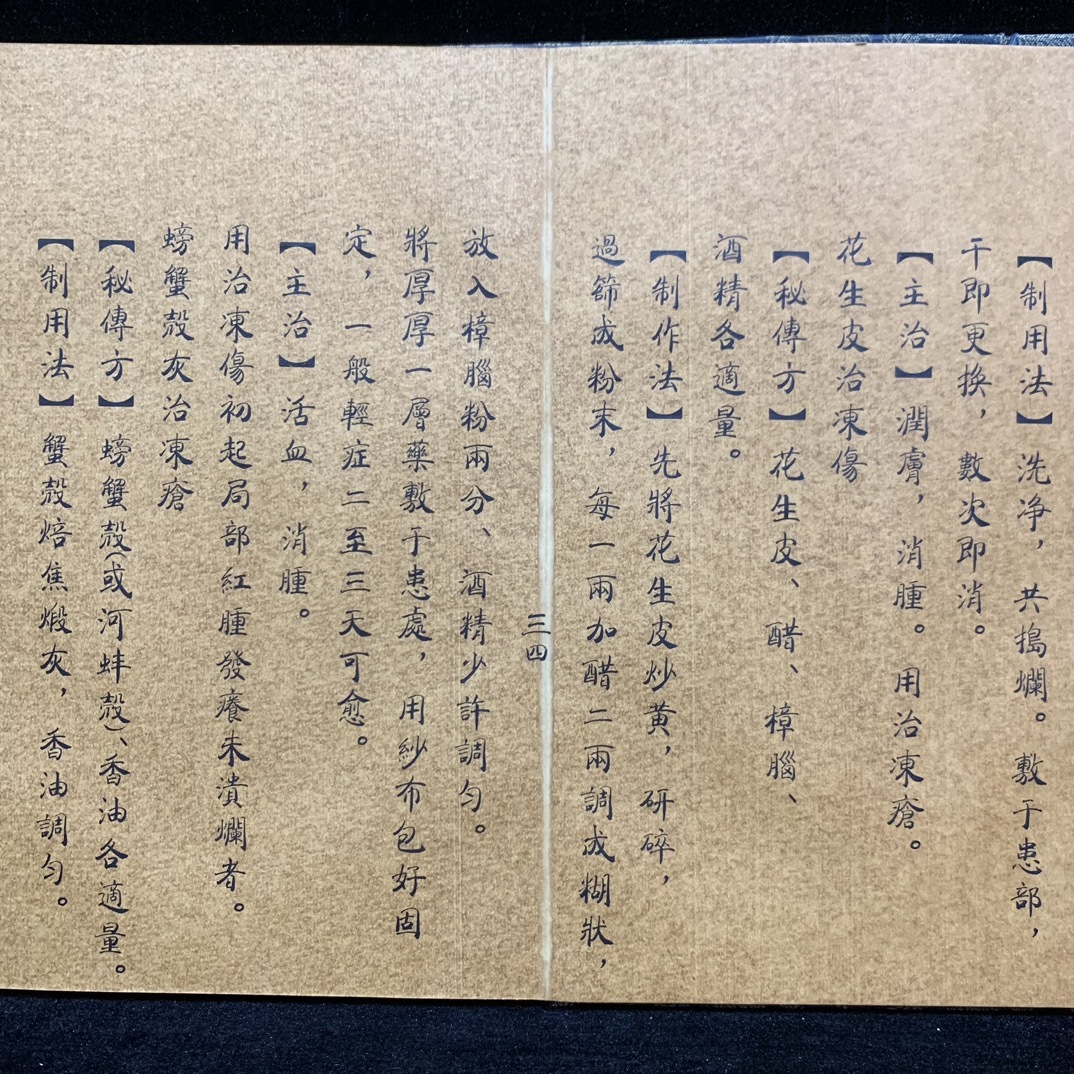 【制用法】洗净，共搗爛。敷于患部，
干即更换，數次即消。
【主治】潤膚，消腫。用治凍瘡。
花生皮治凍傷
【秘傳方】花生皮、醋、樟腦、
酒精各適量。
【制作法】先將花生皮炒黄，研碎，
過篩成粉末，每一兩加醋二兩調成糊狀，
三四
放入樟腦粉兩分、酒精少許調匀。
將厚厚一層藥敷于患處，用紗布包好固
定，一般輕症二至三天可愈。
【主治】活血，消腫。
用治凍傷初起局部紅腫發癢未潰爛者。
螃蟹殼灰治凍瘡
【秘傳方】螃蟹殼(或河蚌殼)、香油各適量。
【制用法】蟹殼焙焦煅灰，香油調匀。